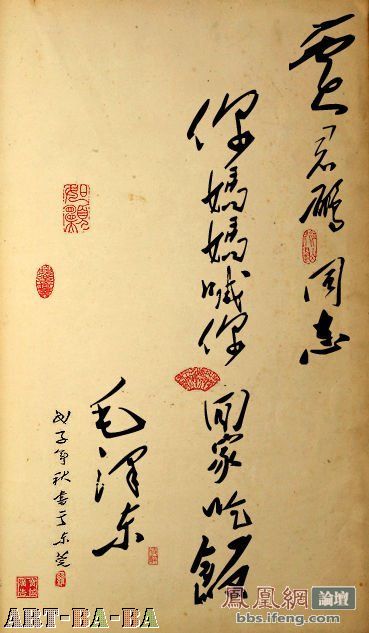 贾君鹏同志
你媽媽喊你回家吃飯
毛泽东
戊子年秋書于东莞
ART-BA-BA
鳳凰網 論壇
bbs.ifeng.com